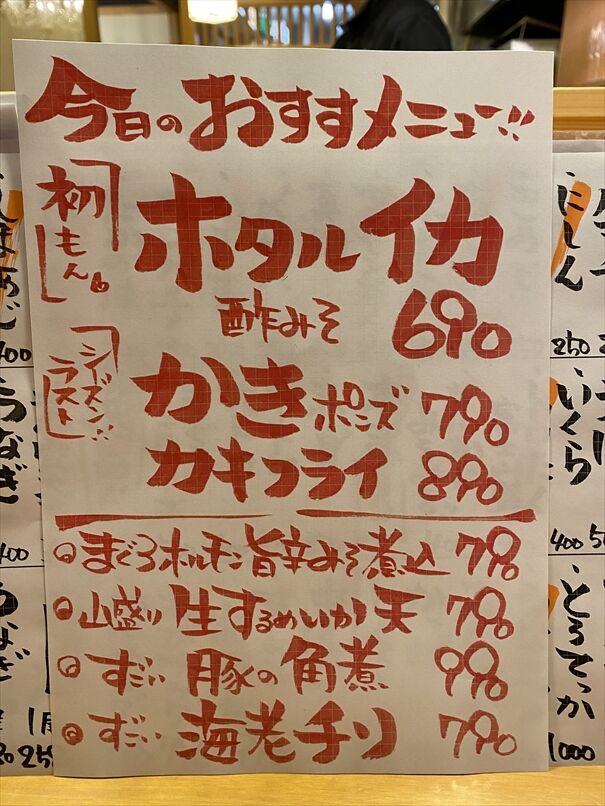 今日のおすすメニュー!!
「初もん。」
ホタルイカ
酢みそ 690
「シーズンラスト!!」
かきポン酢 790
カキフライ 890
まぐろホルモン旨辛みそ煮込 790
山盛り 生するめいか天 790
すだい 豚の角煮 990
すだい 海老チリ 790
にしん
250
いくら
400
とろてっか
1000
うなぎ
400